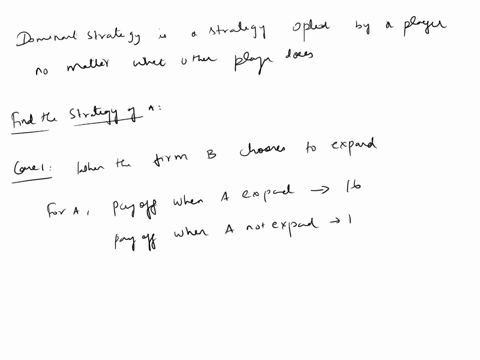 Dominant strategy is a strategy opted by a player
no matter what other player does
Find the strategy of A:
Case1: When the firm B chooses to expand
For A, pay off when A expand → 16
pay off when A not expand → 1